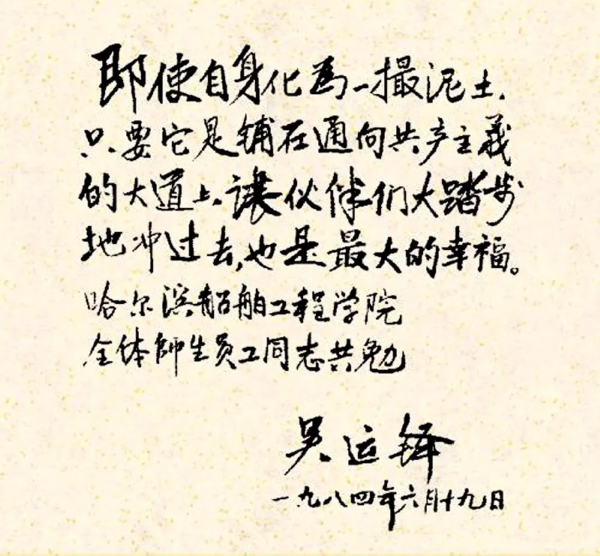 即使自身化為一撮泥土,
只要它是铺在通向共产主義
的大道上,讓伙伴们大踏步
地冲过去,也是最大的幸福。
哈尔滨船舶工程学院
全体師生员工同志共勉
吴运铎
一九八四年六月十九日